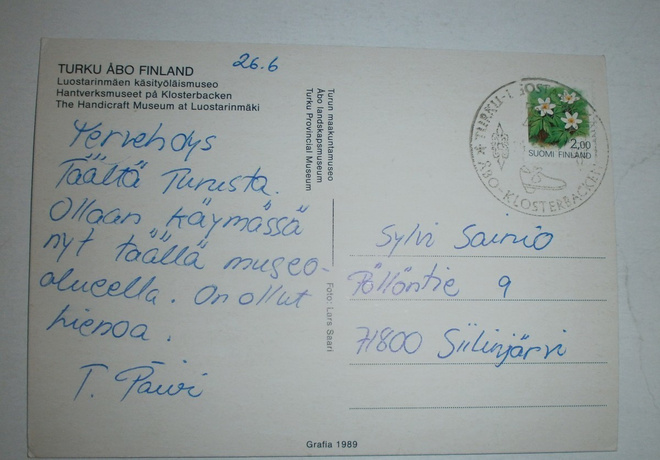 TURKU ÅBO FINLAND
Luostarinmäen käsityöläismuseo
Hantverksmuseet på Klosterbacken
The Handicraft Museum at Luostarinmäki
26.6
Tervehdys
Täältä Turusta.
Ollaan käymässä
nyt täällä museo-
alueella. On ollut
hienoa.
T. Päivi
Turun maakuntamuseo
Åbo landskapsmuseum
Turku Provincial Museum
Foto: Lars Saari
2,00
SUOMI FINLAND
TURKU-
ÅBO-KLOSTERBACKEN
Sylvi Sainio
Pöllöntie 9
71800 Siilinjärvi
Grafia 1989